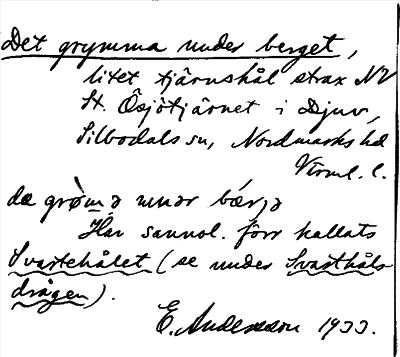 Det grymma under berget,
litet tjärnshål strax NV
St. Ösjötjärnet i Djuv,
Silbodals sn, Nordmarks hd
Värml. l.
da gròm̄ə unər bǽrjə
Har sannol. förr kallats
Svartehålet (se under Svarthåls
drågen).
E. Andersson 1933.